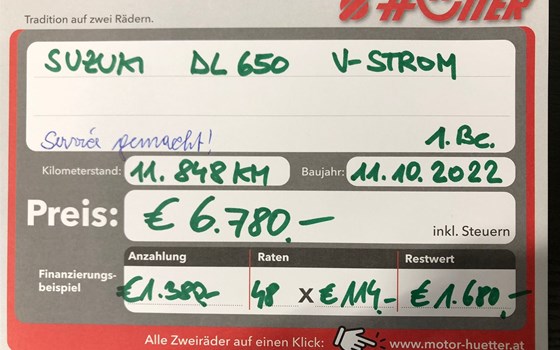 Tradition auf zwei Rädern.
SUZUKI DL 650 V-STROM
Service gemacht! 1. Be.
Kilometerstand: 11.848 KM Baujahr: 11.10.2022
Preis: € 6.780,- inkl. Steuern
Anzahlung Raten Restwert
Finanzierungs-
beispiel
€ 1.380,- 48 x € 114,- € 1.680,-
Alle Zweiräder auf einen Klick: www.motor-huetter.at